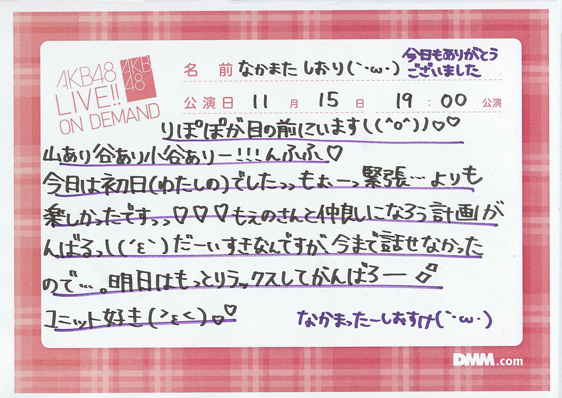 AKB48
LIVE!!
ON DEMAND
AKB
48
名 前 なかまた しおり(`・ω・)
今日もありがとう
ございました
公演日 11 月 15 日 19 : 00 公演
りぽぽが目の前にいます！((*^o^))♡♡
山あり谷あり小谷ありー!!!んふふ♡
今日は初日(わたしの)でしたっっもぉーっ緊張…よりも
楽しかったですっっ♡♡♡もえのさんと仲良しになろう計画が
んばるっ！(´ε`)だーいすきなんですが、今まで話せなかった
ので…。明日はもっとリラックスしてがんばろー
ユニット好き(>ε<)♡♡
なかまったーしおすけ(`・ω・)
DMM.com